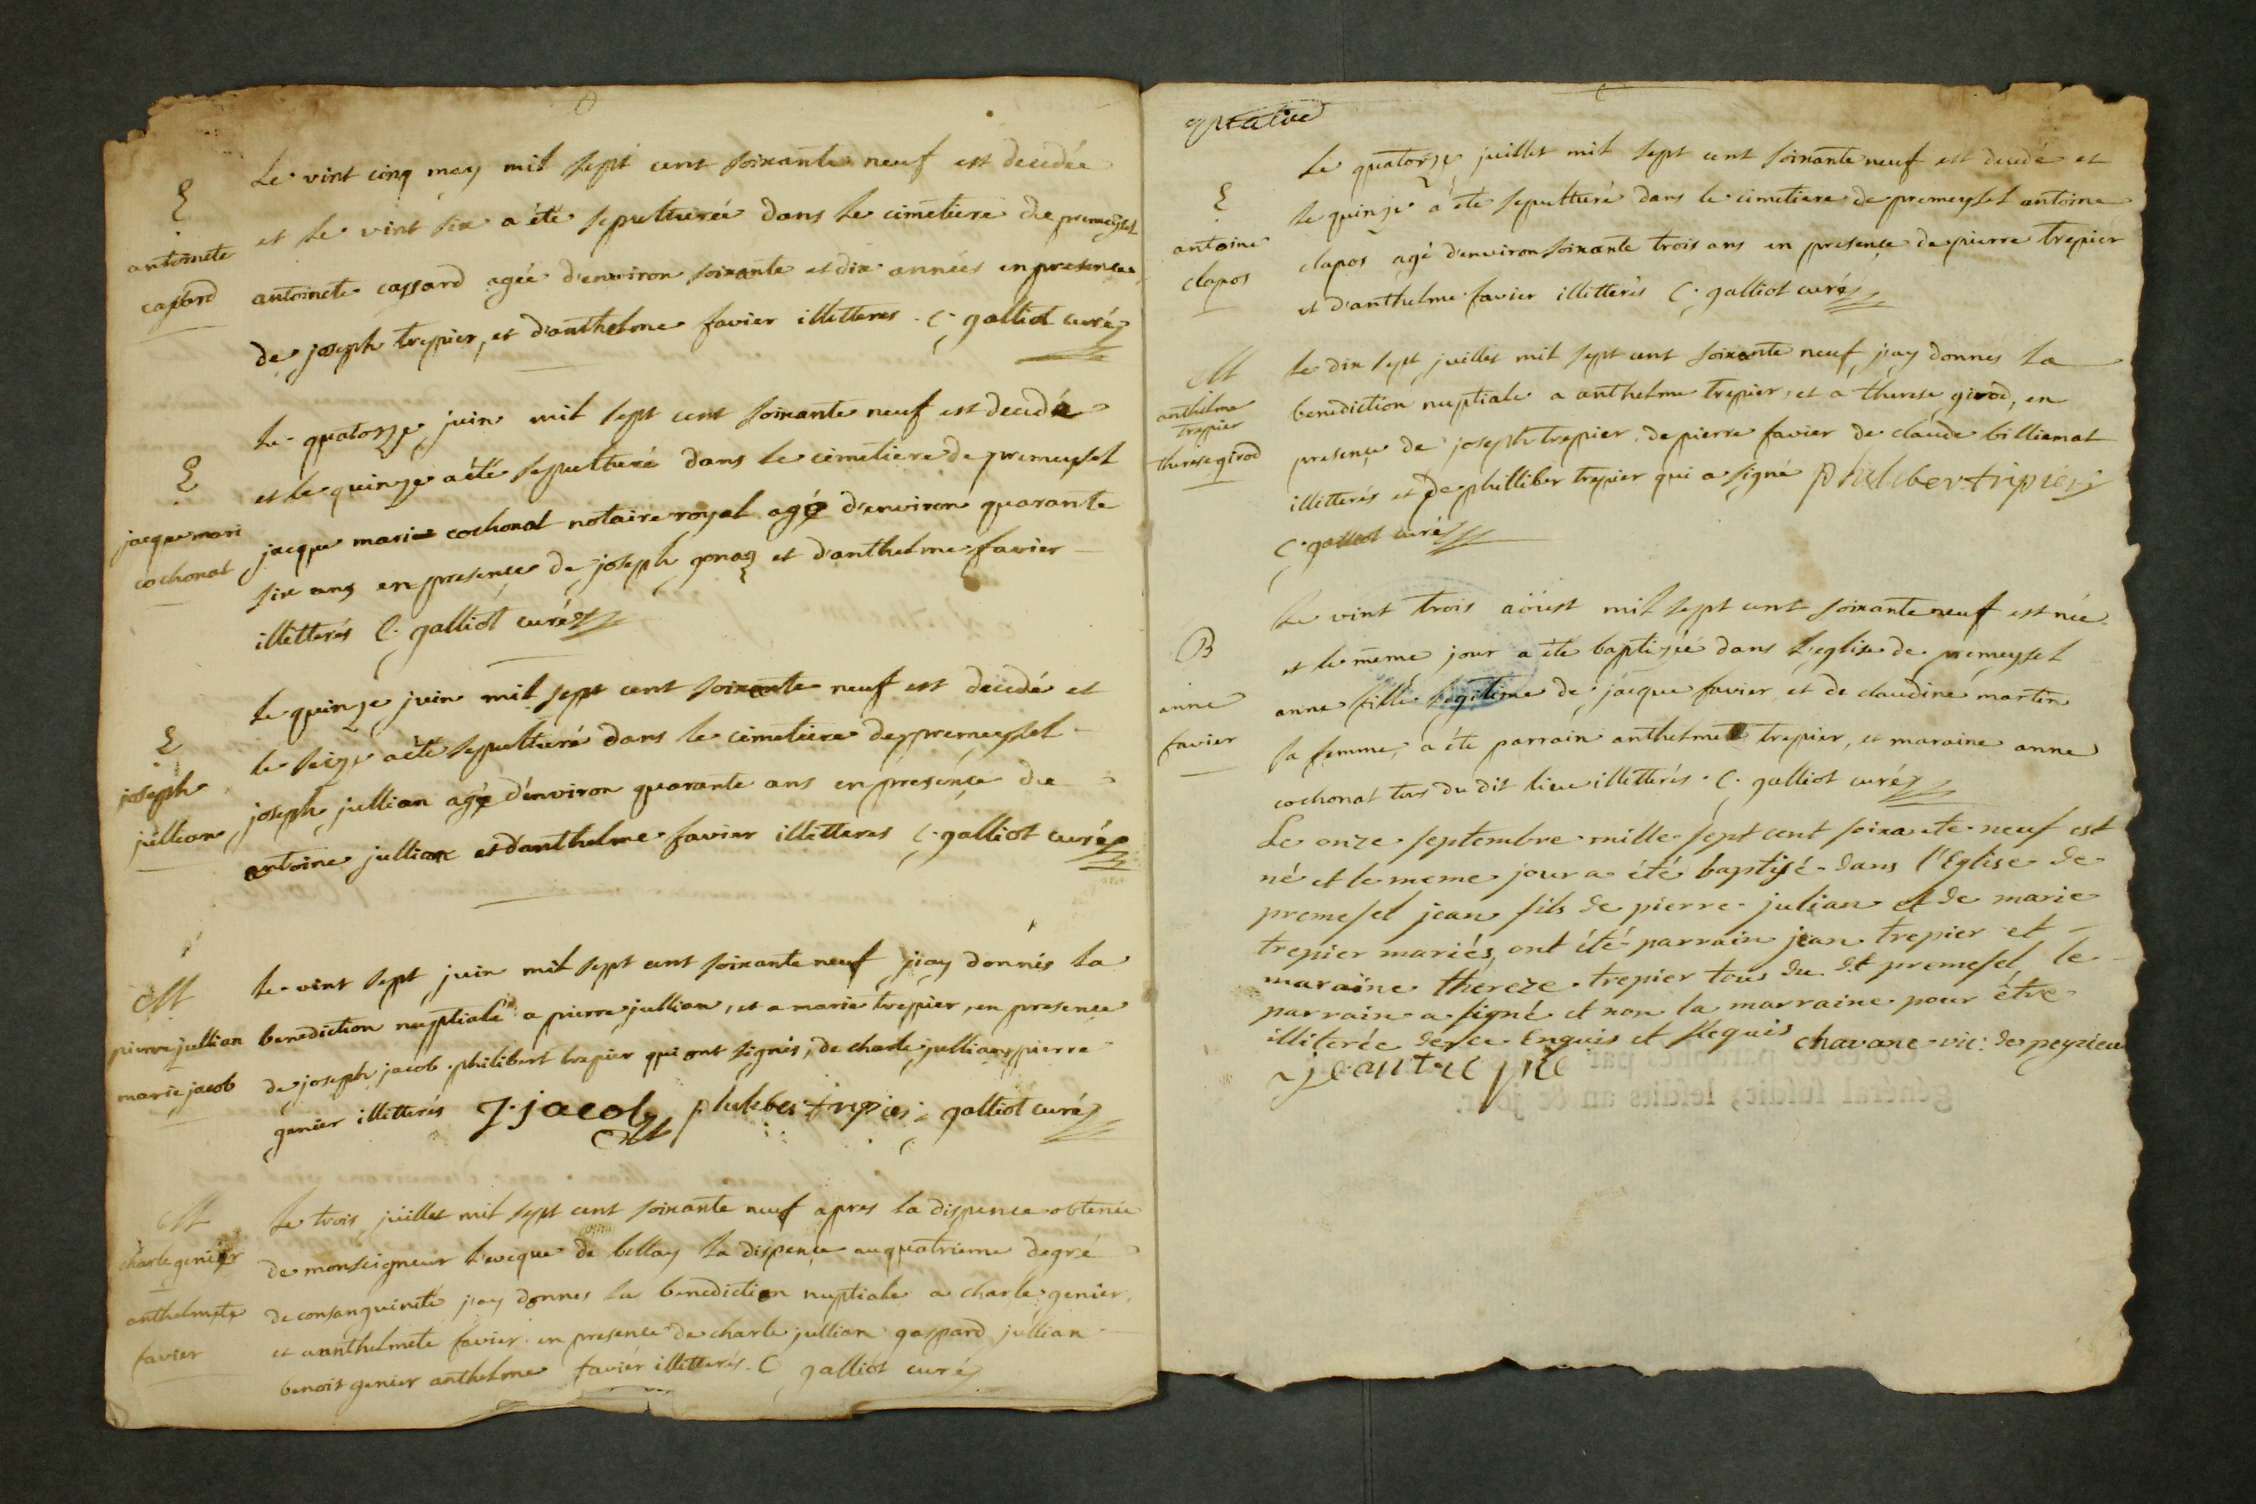 Le vint cinq may mil sept cent soixante neuf est decedée
et le vint six a été sepulturée dans le cimetiere de premeyzel
antoinete cassard agée d'environ soixante et dix années en presence
de joseph trepier, et d'anthelme favier illitteres. C. galliot curé
S
antoinete
cassard
Le quatorze juin mil sept cent soixante neuf est decedé
et le quinze a été sepulturé dans le cimetiere de premeyzel
jacque marie cochonat notaire royal agé d'environ quarante
six ans en presence de joseph gonag et d'anthelme favier
illitterés C. galliot curé
S
jacque mari
cochonat
Le quinze juin mil sept cent soixante neuf est decedé et
le seize a été sepulturé dans le cimetiere de premeyzel
joseph jullian agé d'environ quarante ans en presence de
antoine jullian et d'anthelme favier illitteres C. galliot curé
S
joseph
jullian
Le vint sept juin mil sept cent soixante neuf j'ay donnés la
benediction nuptiale a pierre jullian, et a marie trepier, en presence
de joseph jacob. philibert trepier qui ont signés, de charle jullian, pierre
genier illitterés J. jacob philiber trepier C. galliot curé
M
pierre jullian
marie jacob
Le trois juillet mil sept cent soixante neuf apres la dispence obtenüe
de monseigneur l'eveque de bellay la dispence au quatrieme degré
de consanguinité j'ay donnes la benediction nuptiale a charle genier,
et a anthelmete favier en presence de charle jullian gaspard jullian
benoit genier anthelme favier illitterés. C galliot curé
M
charle genier
anthelmete
favier
Le quatorze juillet mil sept cent soixante neuf est decedé et
le quinze a été sepulturé dans le cimetiere de premeyzel antoine
clapos agé d'environ soixante trois ans en presence de pierre trepier
et d'anthelme favier illitterés C. galliot curé
S
antoine
clapos
Le dix sept juillet mil sept cent soixante neuf j'ay donnes la
benediction nuptiale a anthelme trepier, et a therese girod, en
presence de joseph trepier, de pierre favier de claude billiemat
illitterés et de philliber trepier qui a signé philiber tripier
C. galliot curé
M
anthelme
trepier
therese girod
Le vint trois aöust mil sept cent soixante neuf est née
et le même jour a été baptizée dans l'eglise de premeyzel
anne fille legitime de jacque favier et de claudine martin
sa femme, a été parrain anthelme trepier, et maraine anne
cochonat tus du dit lieu illitterés. C. galliot curé
B
anne
favier
Le onze septembre mille sept cent soixante neuf est
né et le meme jour a été baptisé dans l'Eglise de
premesel jean fils de pierre julian et de marie
trepier mariés, ont été parrain jean trepier et
maraine thereze trepier tous du dt premesel le
parrain a signé et non la marraine pour être
illiterée de ce Enquis et Requis chavane vic. de peyzieu
jean trepié